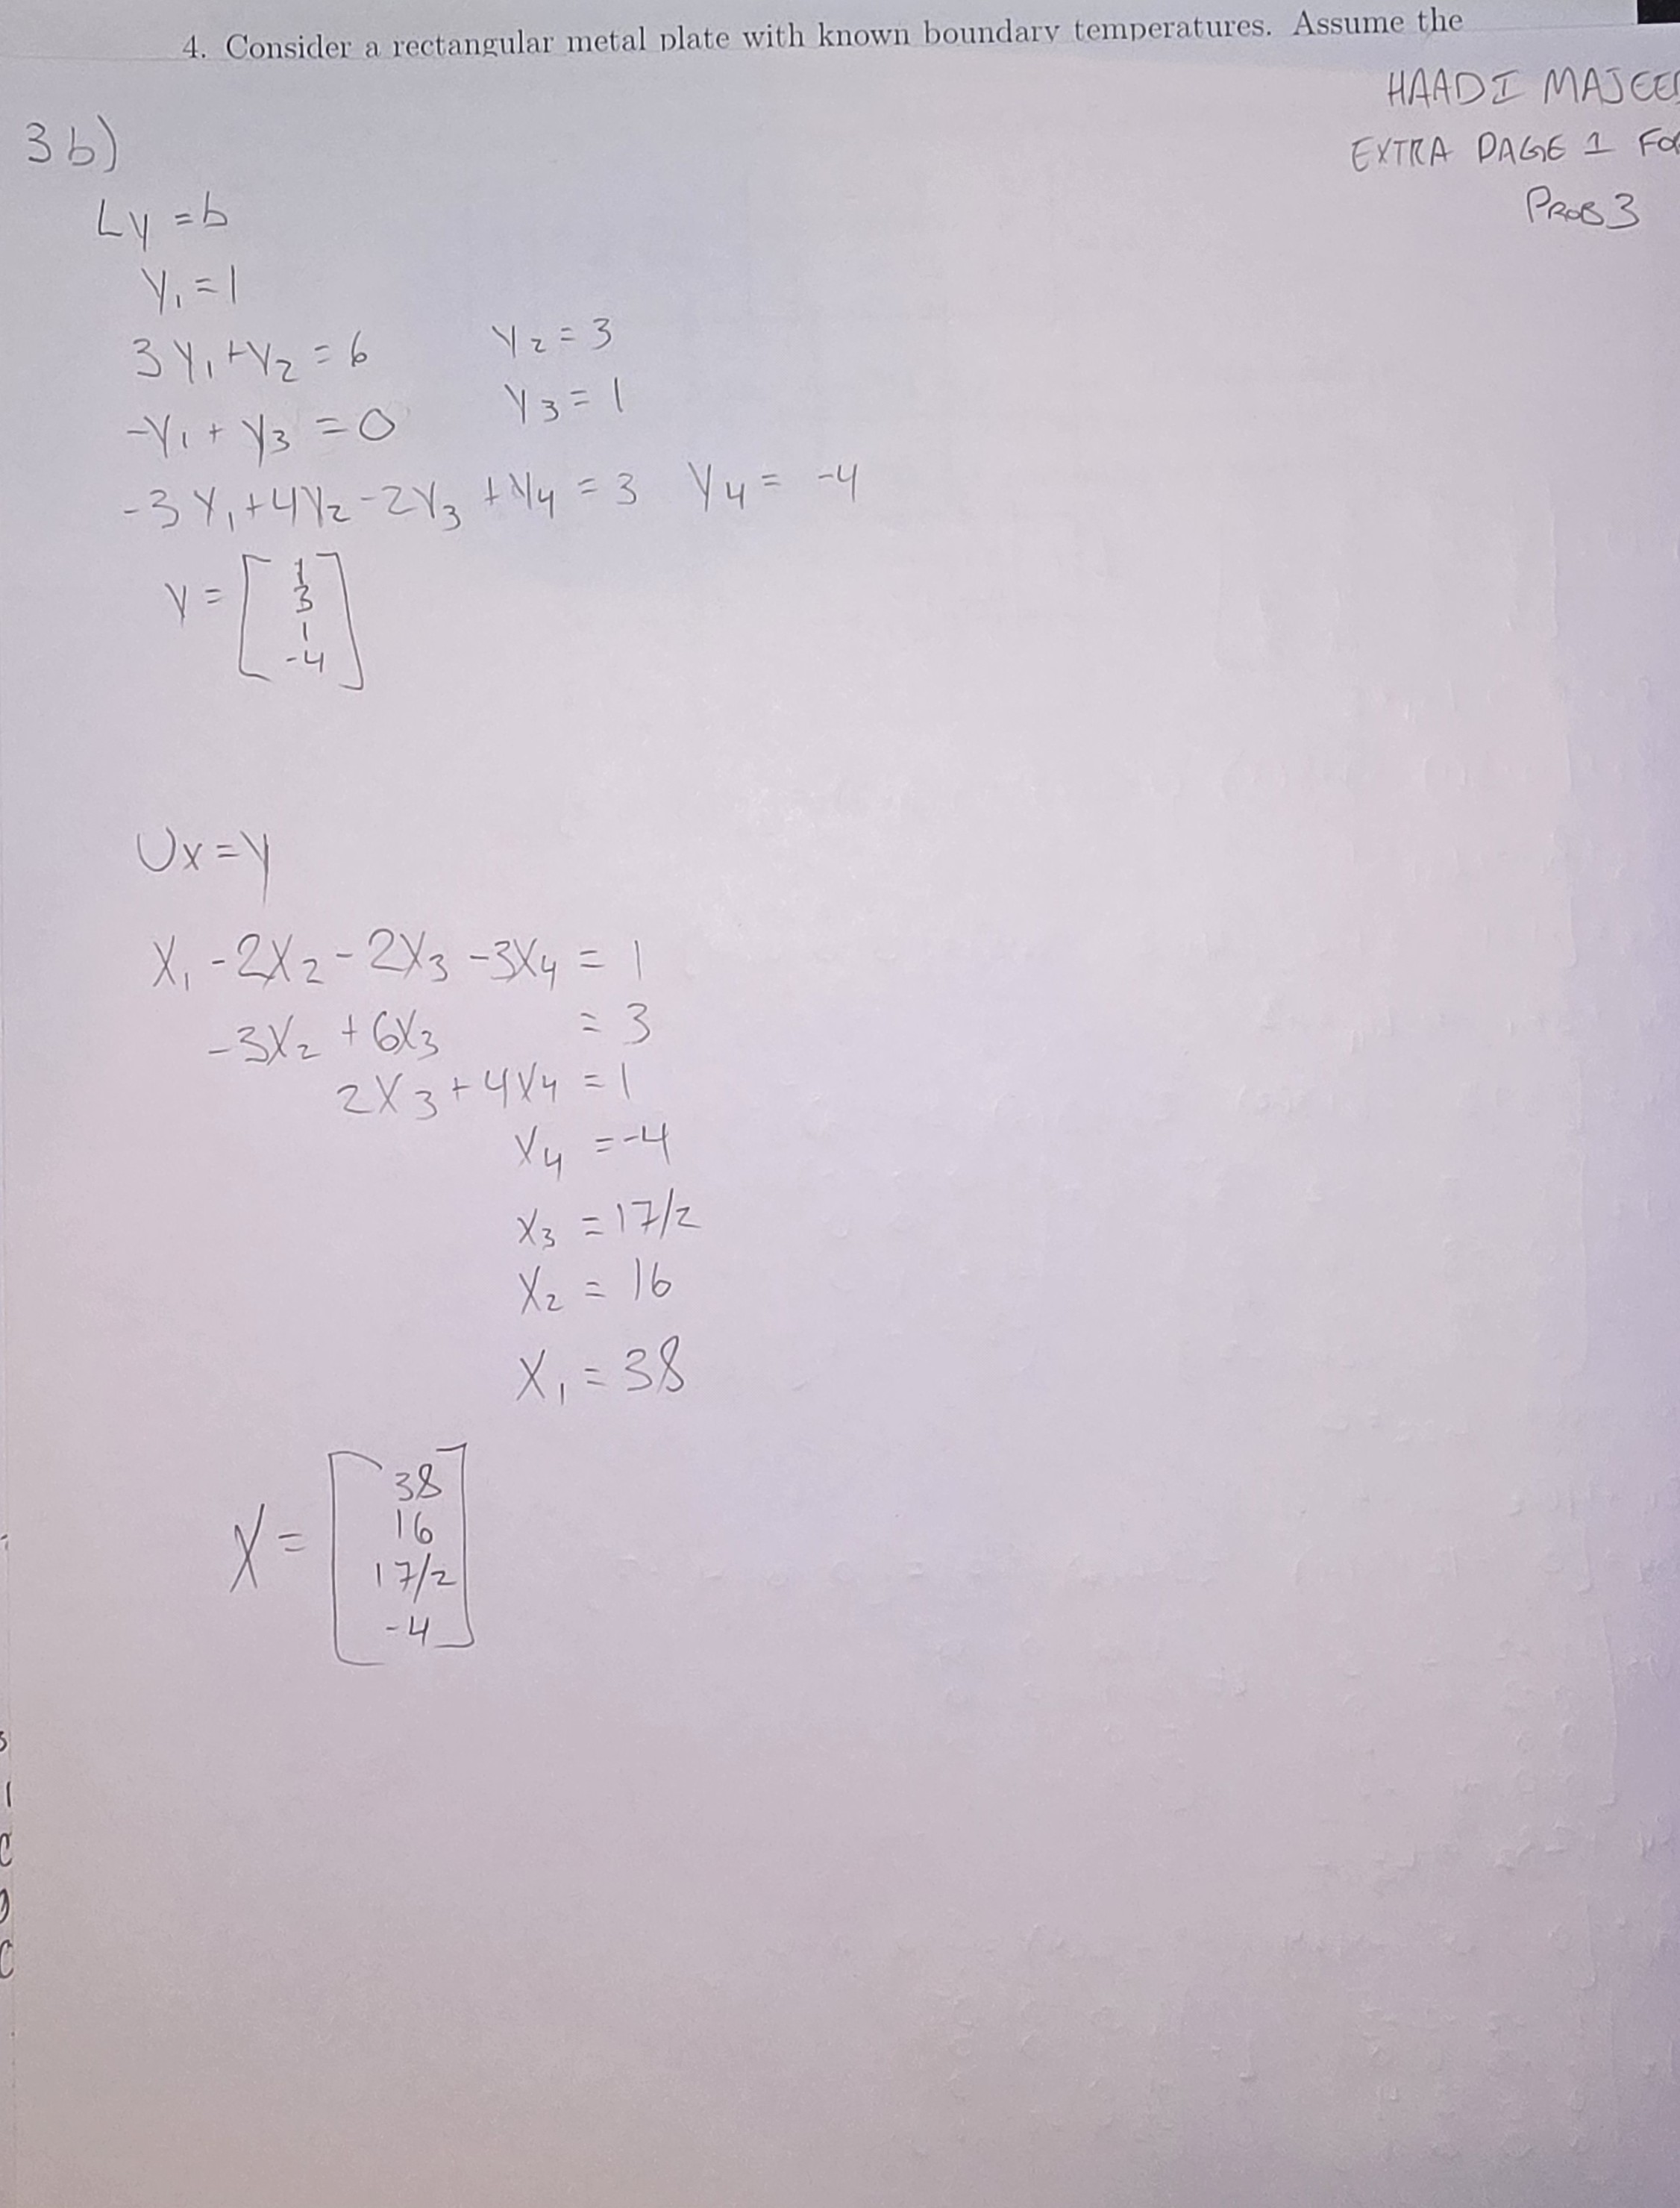 4. Consider a rectangular metal plate with known boundary temperatures. Assume the
HAADI MAJEE
EXTRA PAGE 1 FO
PROB 3
3b)
Ly = b
y₁ = 1
3y₁ + y₂ = 6 y₂ = 3
-y₁ + y₃ = 0 y₃ = 1
-3y₁ + 4y₂ - 2y₃ + y₄ = 3 y₄ = -4
y = [
1
3
1
-4
]
Ux = y
x₁ - 2x₂ - 2x₃ - 3x₄ = 1
-3x₂ + 6x₃ = 3
2x₃ + 4x₄ = 1
x₄ = -4
x₃ = 17/2
x₂ = 16
x₁ = 38
x = [
38
16
17/2
-4
]